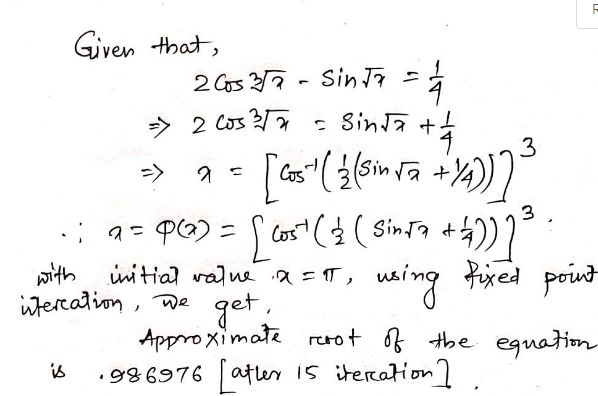 R
Given that,
2 Cos ∛x - Sin √x = 1/4
⇒ 2 Cos ∛x = Sin √x + 1/4
⇒ x = [Cos⁻¹(½(Sin √x + 1/4))]³
∴ x = φ(x) = [Cos⁻¹(½(Sin √x + ¼))]³.
with initial value x = π, using fixed point
itercation, we get,
Approximate root of the equation
is .986976 [after 15 itercation].